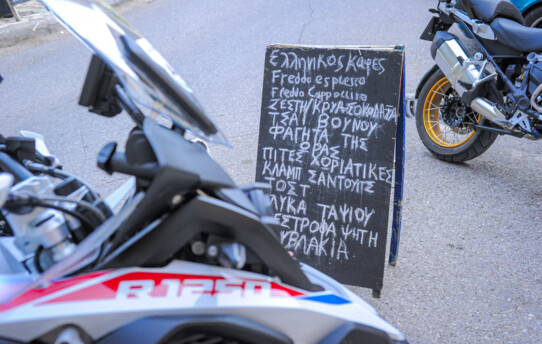 Ελληνικός καφές
Freddo espresso
Freddo Cappuccino
ΖΕΣΤΗ/ΚΡΥΑ ΣΟΚΟΛΑΤΑ
ΤΣΑΙ ΒΟΥΝΟΥ
ΦΑΓΗΤΑ ΤΗΣ
ΩΡΑΣ
ΠΙΤΕΣ ΧΩΡΙΑΤΙΚΕΣ
ΚΛΑΜΠ ΣΑΝΤΟΥΙΤΣ
ΤΟΣΤ
ΛΥΚΑ ΤΑΨΙΟΥ
ΕΣΤΡΟΦΑ ΨΗΤΗ
ΥΒΛΑΚΙΑ
R 1250